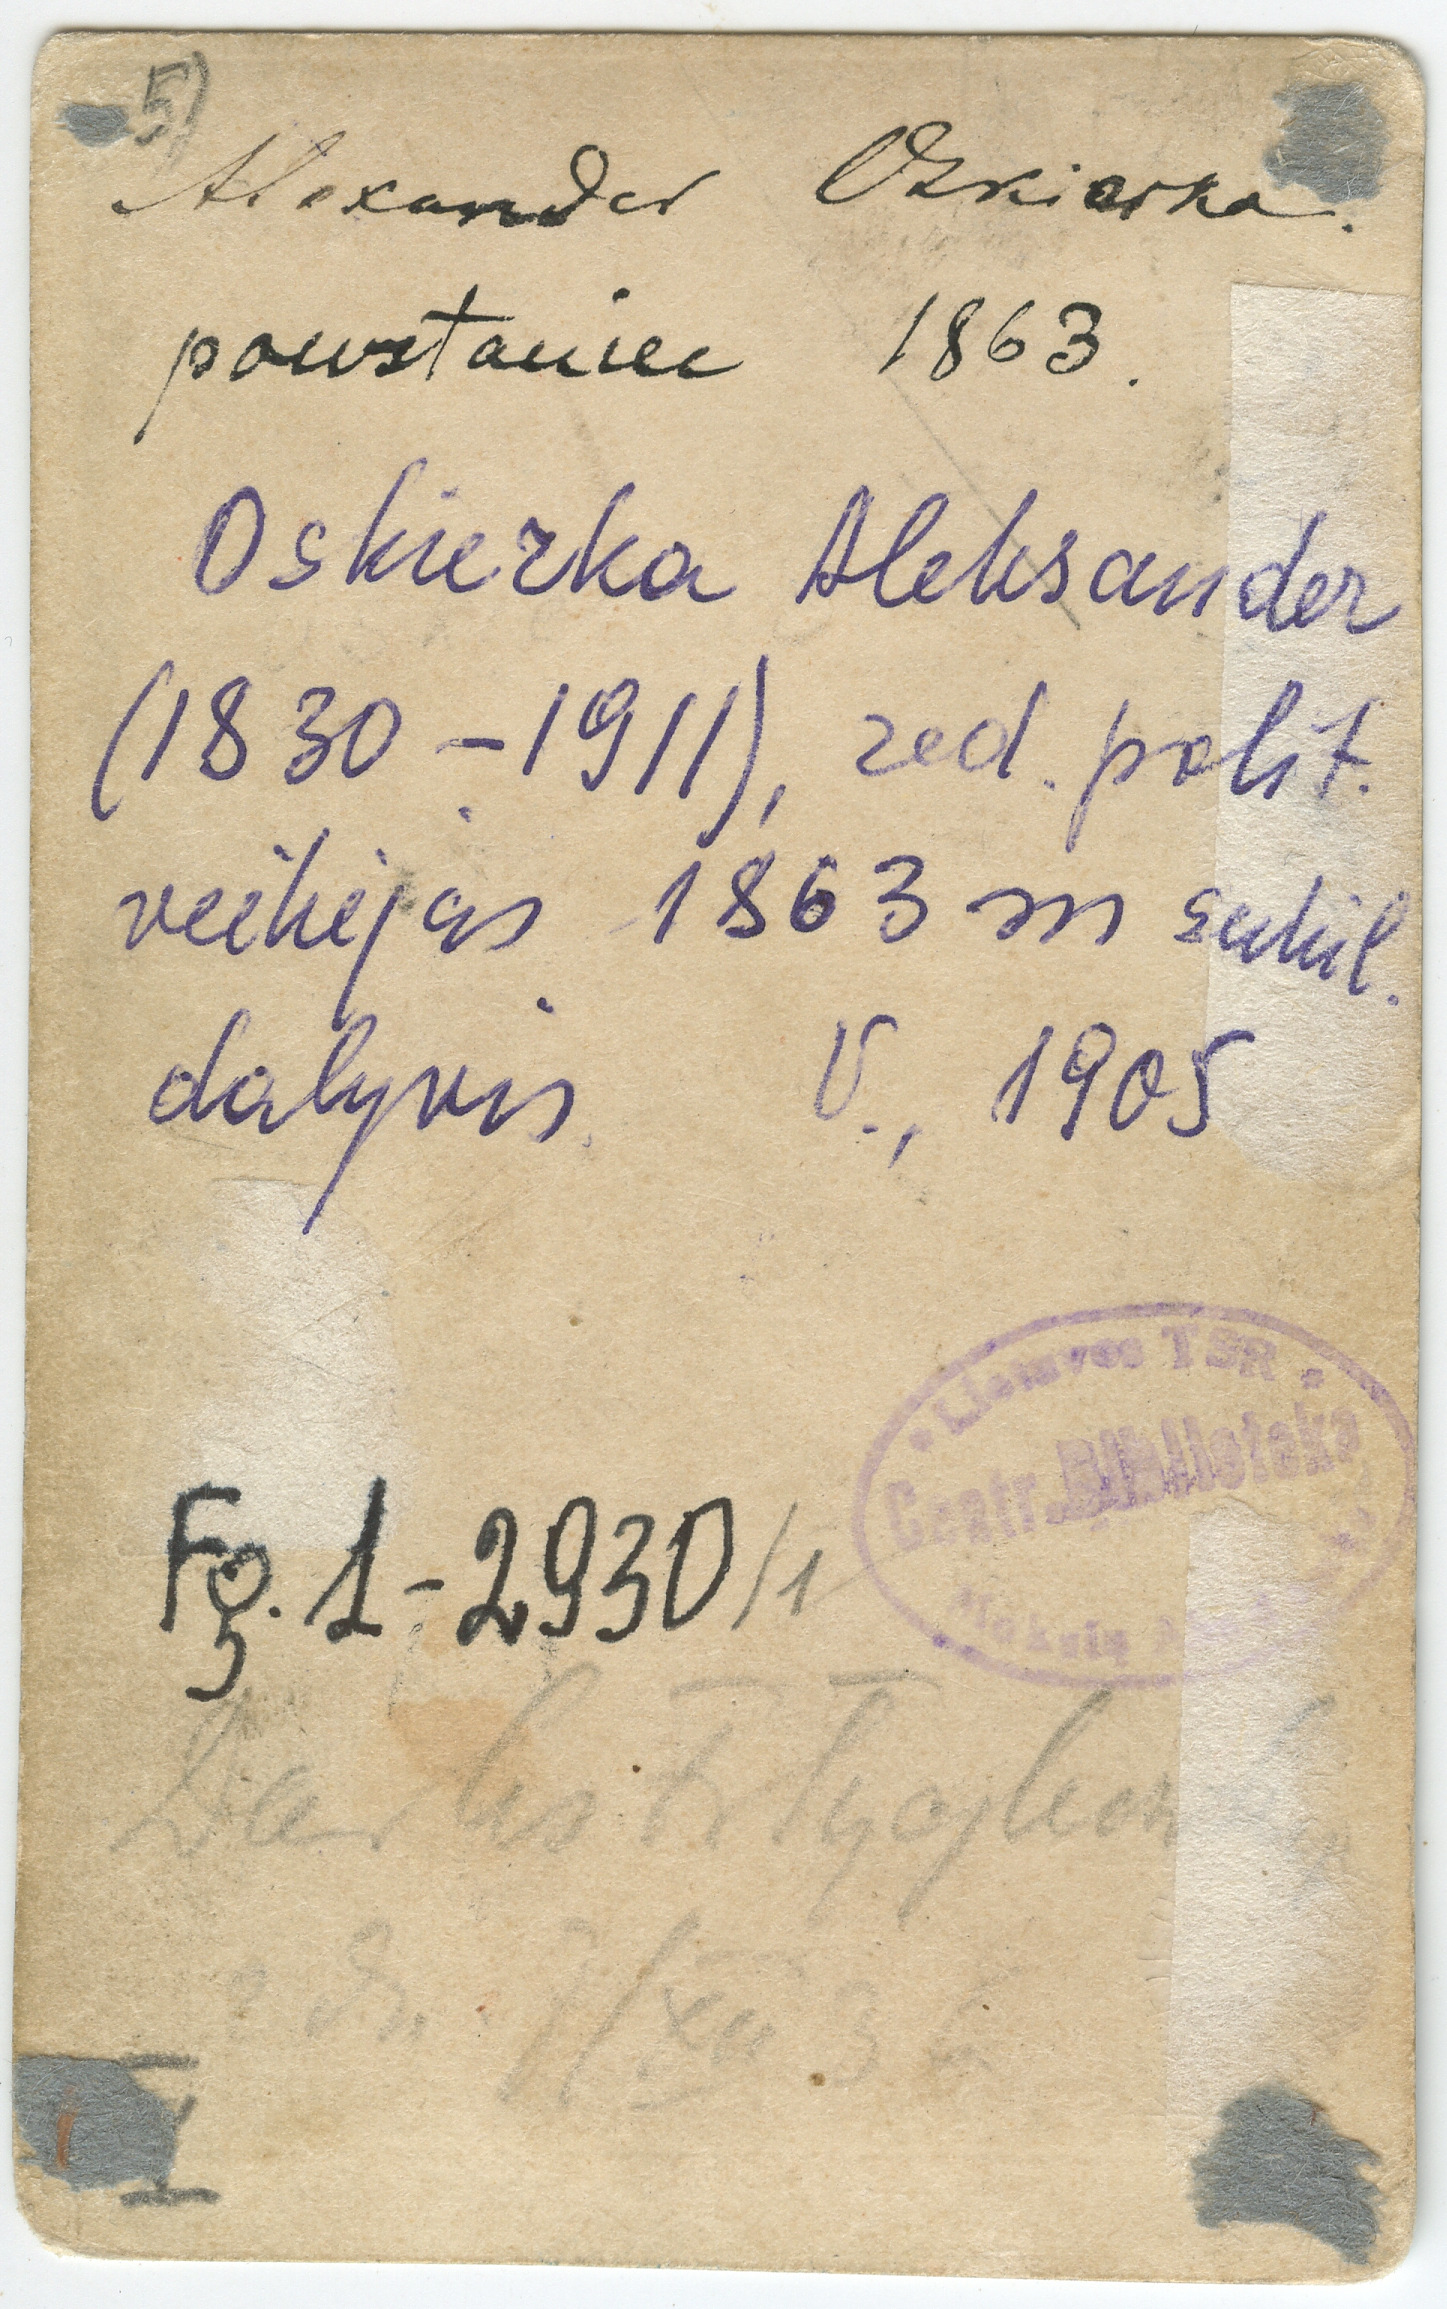 5)
Alexander Oskierka.
powstaniec 1863.
Oskierka Aleksander
(1830-1911), red. polit.
veikėjas 1863 m sukil.
dalyvis. V., 1905
Lietuvos TSR
Centr. Biblioteka
Mokslų
Fg. 1-2930/1
XII 36